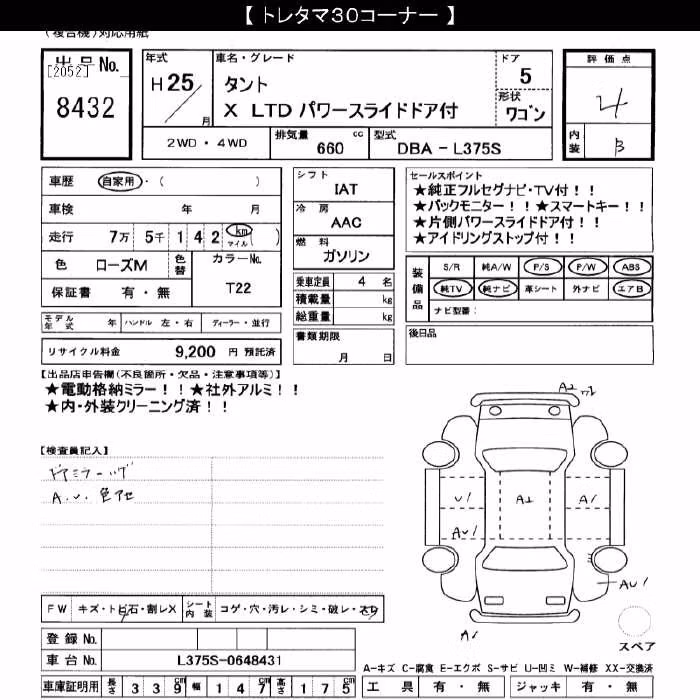 【トレタマ30コーナー】
(複合機)対応用紙
出品No.
[2052]
8432
年式
H25/月
車名・グレード
タント
X LTD パワースライドドア付
ドア
5
形状
ワゴン
評価点
4
内装
B
2WD・4WD
排気量
660 cc
型式
DBA-L375S
車歴 自家用・( )
車検 年 月
走行 7万 5千 1 4 2 km マイル ( )
色 ローズM
色替
カラーNo.
T22
保証書 有・無
モデル年式 年
ハンドル 左・右
ディーラー・並行
リサイクル料金 9,200 円 預託済
シフト
IAT
冷房
AAC
燃料
ガソリン
乗車定員 4 名
積載量 kg
総重量 kg
書類期限
月 日
セールスポイント
★純正フルセグナビ・TV付！！
★バックモニター！！★スマートキー！！
★片側パワースライドドア付！！
★アイドリングストップ付！！
装備品
S/R 純A/W P/S P/W ABS
純TV 純ナビ 革シート 外ナビ エアB
ナビ型番：
後日品
【出品店申告欄(不良箇所・欠品・注意事項等)】
★電動格納ミラー！！★社外アルミ！！
★内・外装クリーニング済！！
【検査員記入】
ドアミラーｯｸﾞ
A.U. 色アセ
A1
U1
A1
A1
AU1
AU1
A1
スペア
FW キズ・トビ石・割レX
シート内装 コゲ・穴・汚レ・シミ・破レ・スレ
登録No.
車台No. L375S-0648431
A-キズ C-腐食 E-エクボ S-サビ U-凹ミ W-補修 XX-交換済
車庫証明用 長さ 3 3 9 cm 幅 1 4 7 cm 高さ 1 7 5 cm
工具 有・無
ジャッキ 有・無